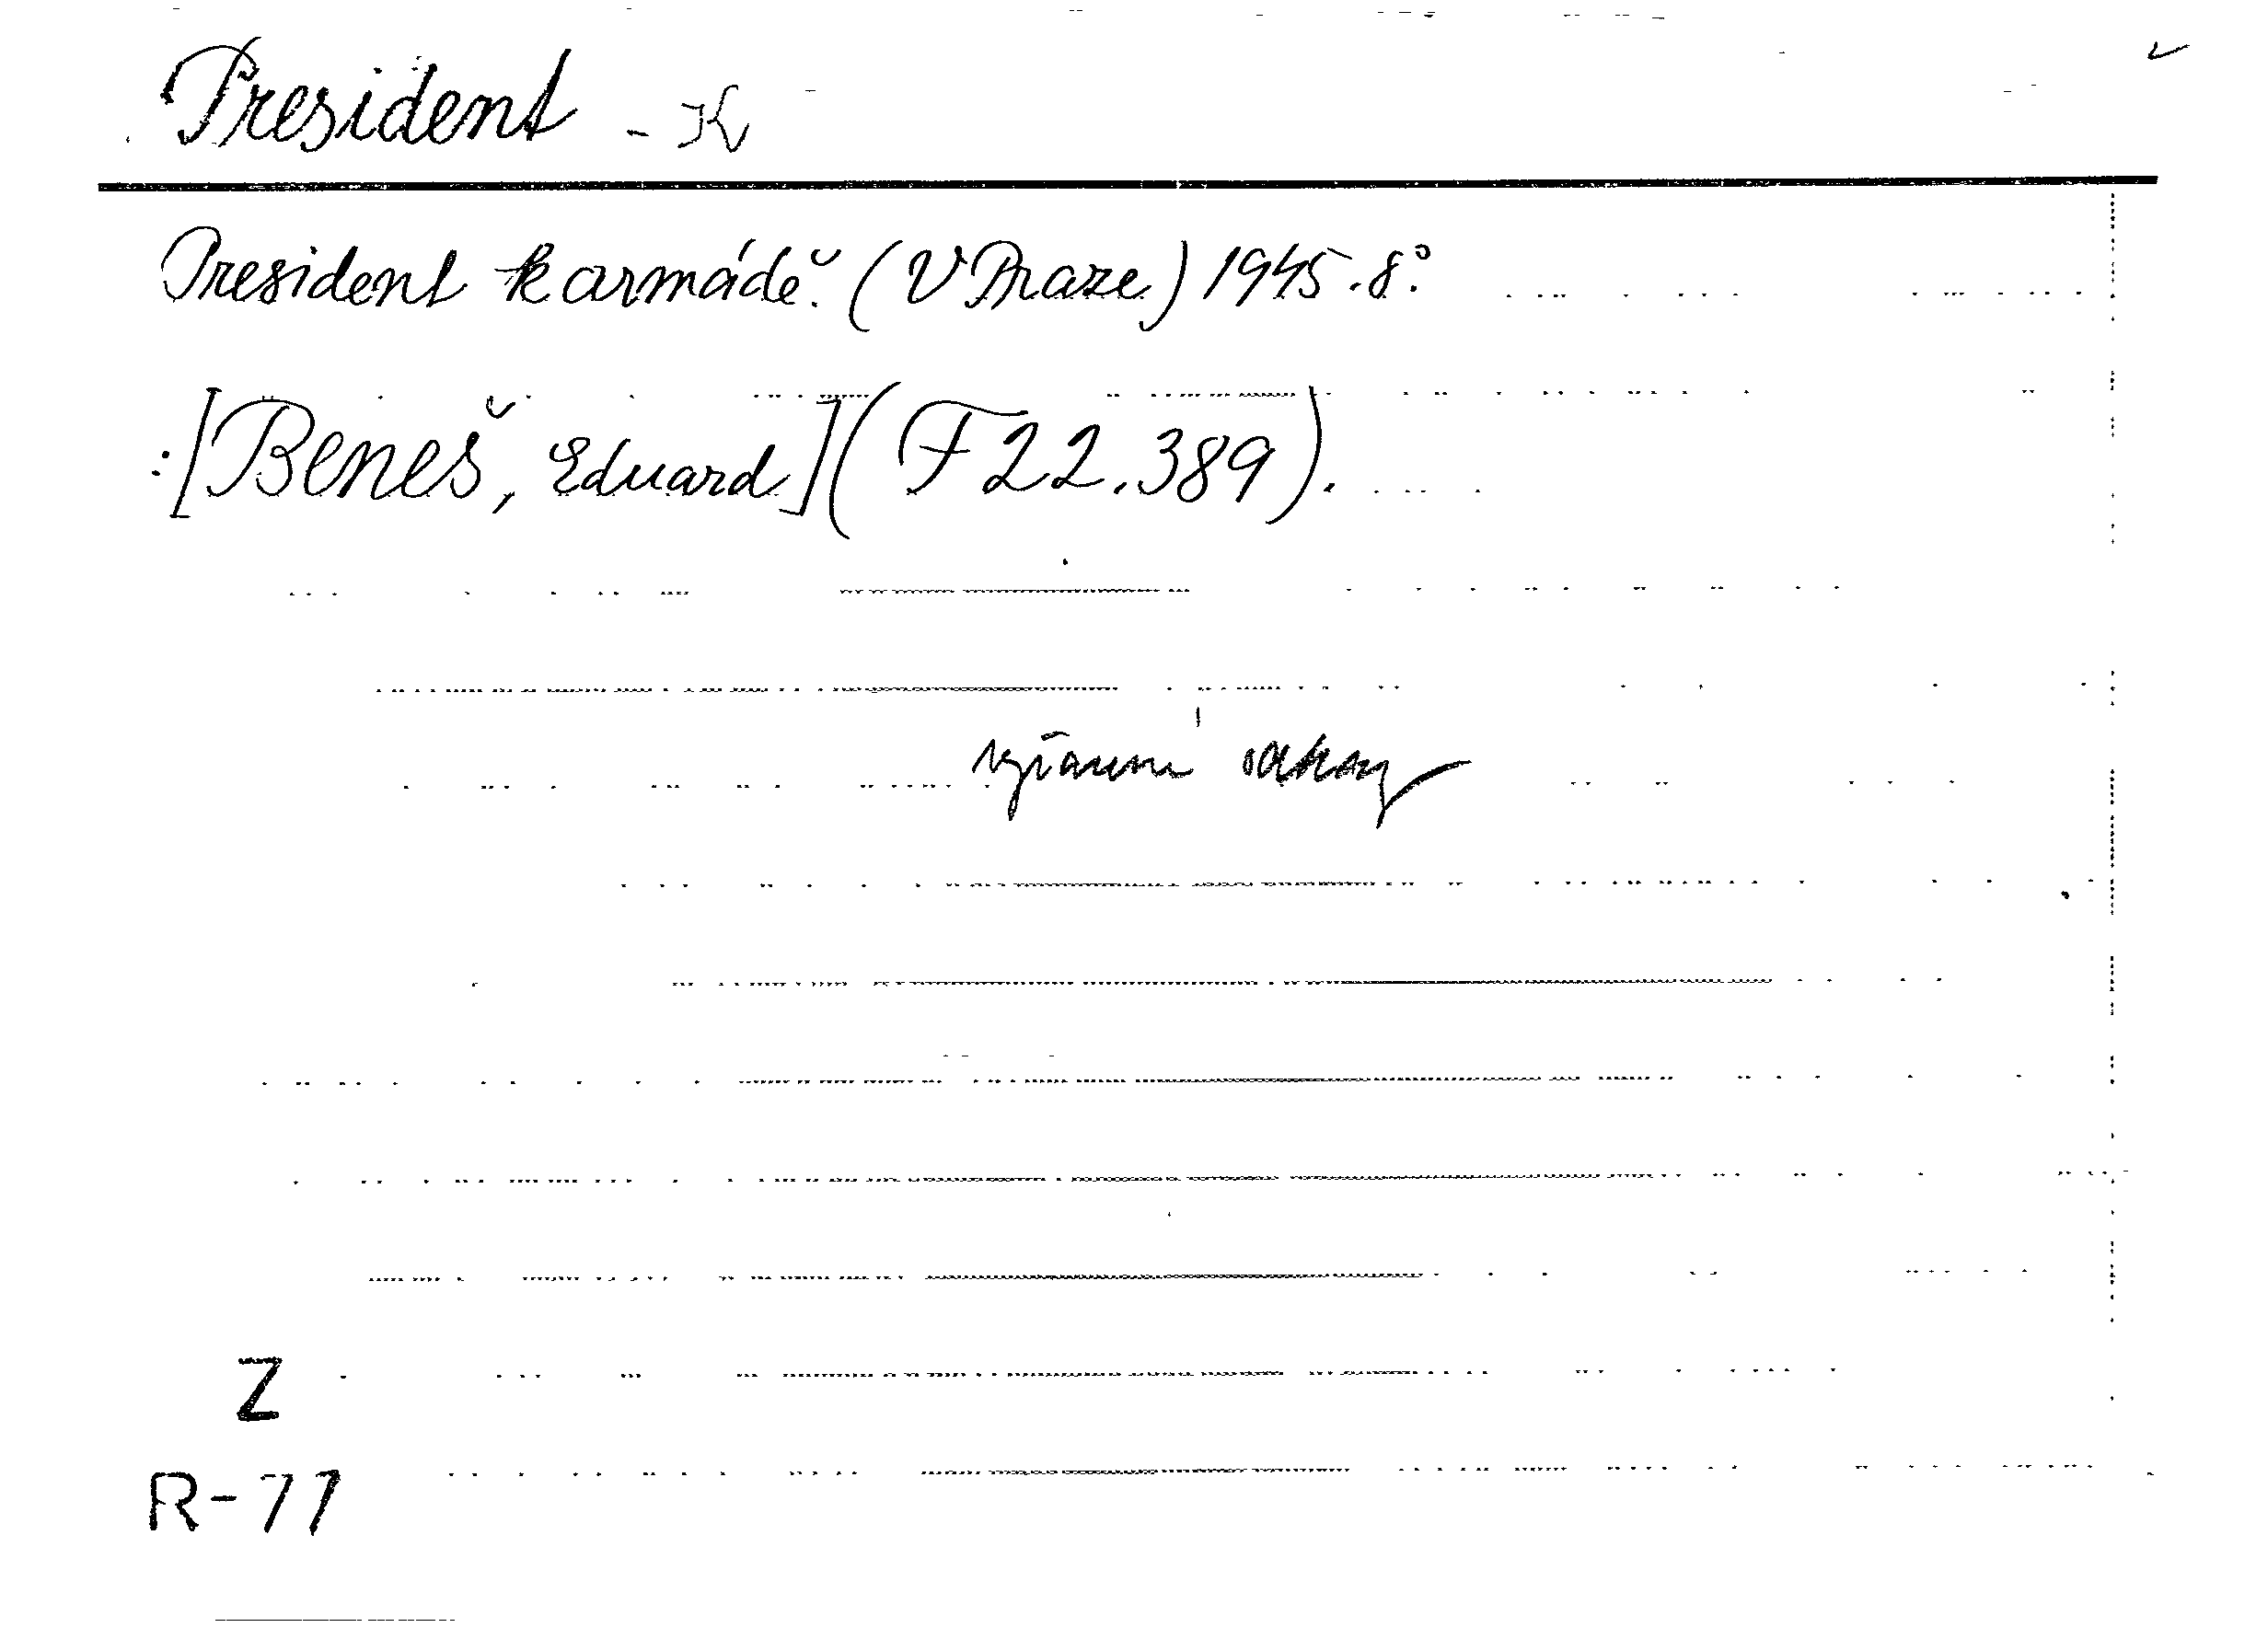 President - K
President k armádě. (V Praze) 1945. 8°.
:[Beneš, Eduard] (F 22.389).
Z
R-77